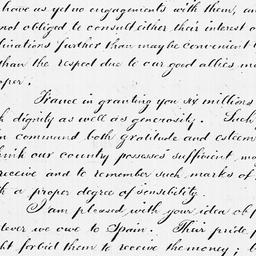 have us yet no engagements with them, and
not obliged to consult either their interest o
linations further than may be convenient t
than the respect due to our good allies ma
oper.
France in granting you six millions
k dignity as well as generosity. Such
n command both gratitude and esteem
think our country possesses sufficient ma
receive and to remember such marks of
h a proper degree of sensibility.
I am pleased with your idea of p
tever we owe to Spain. Their pride p
ht forbid them to receive the money;